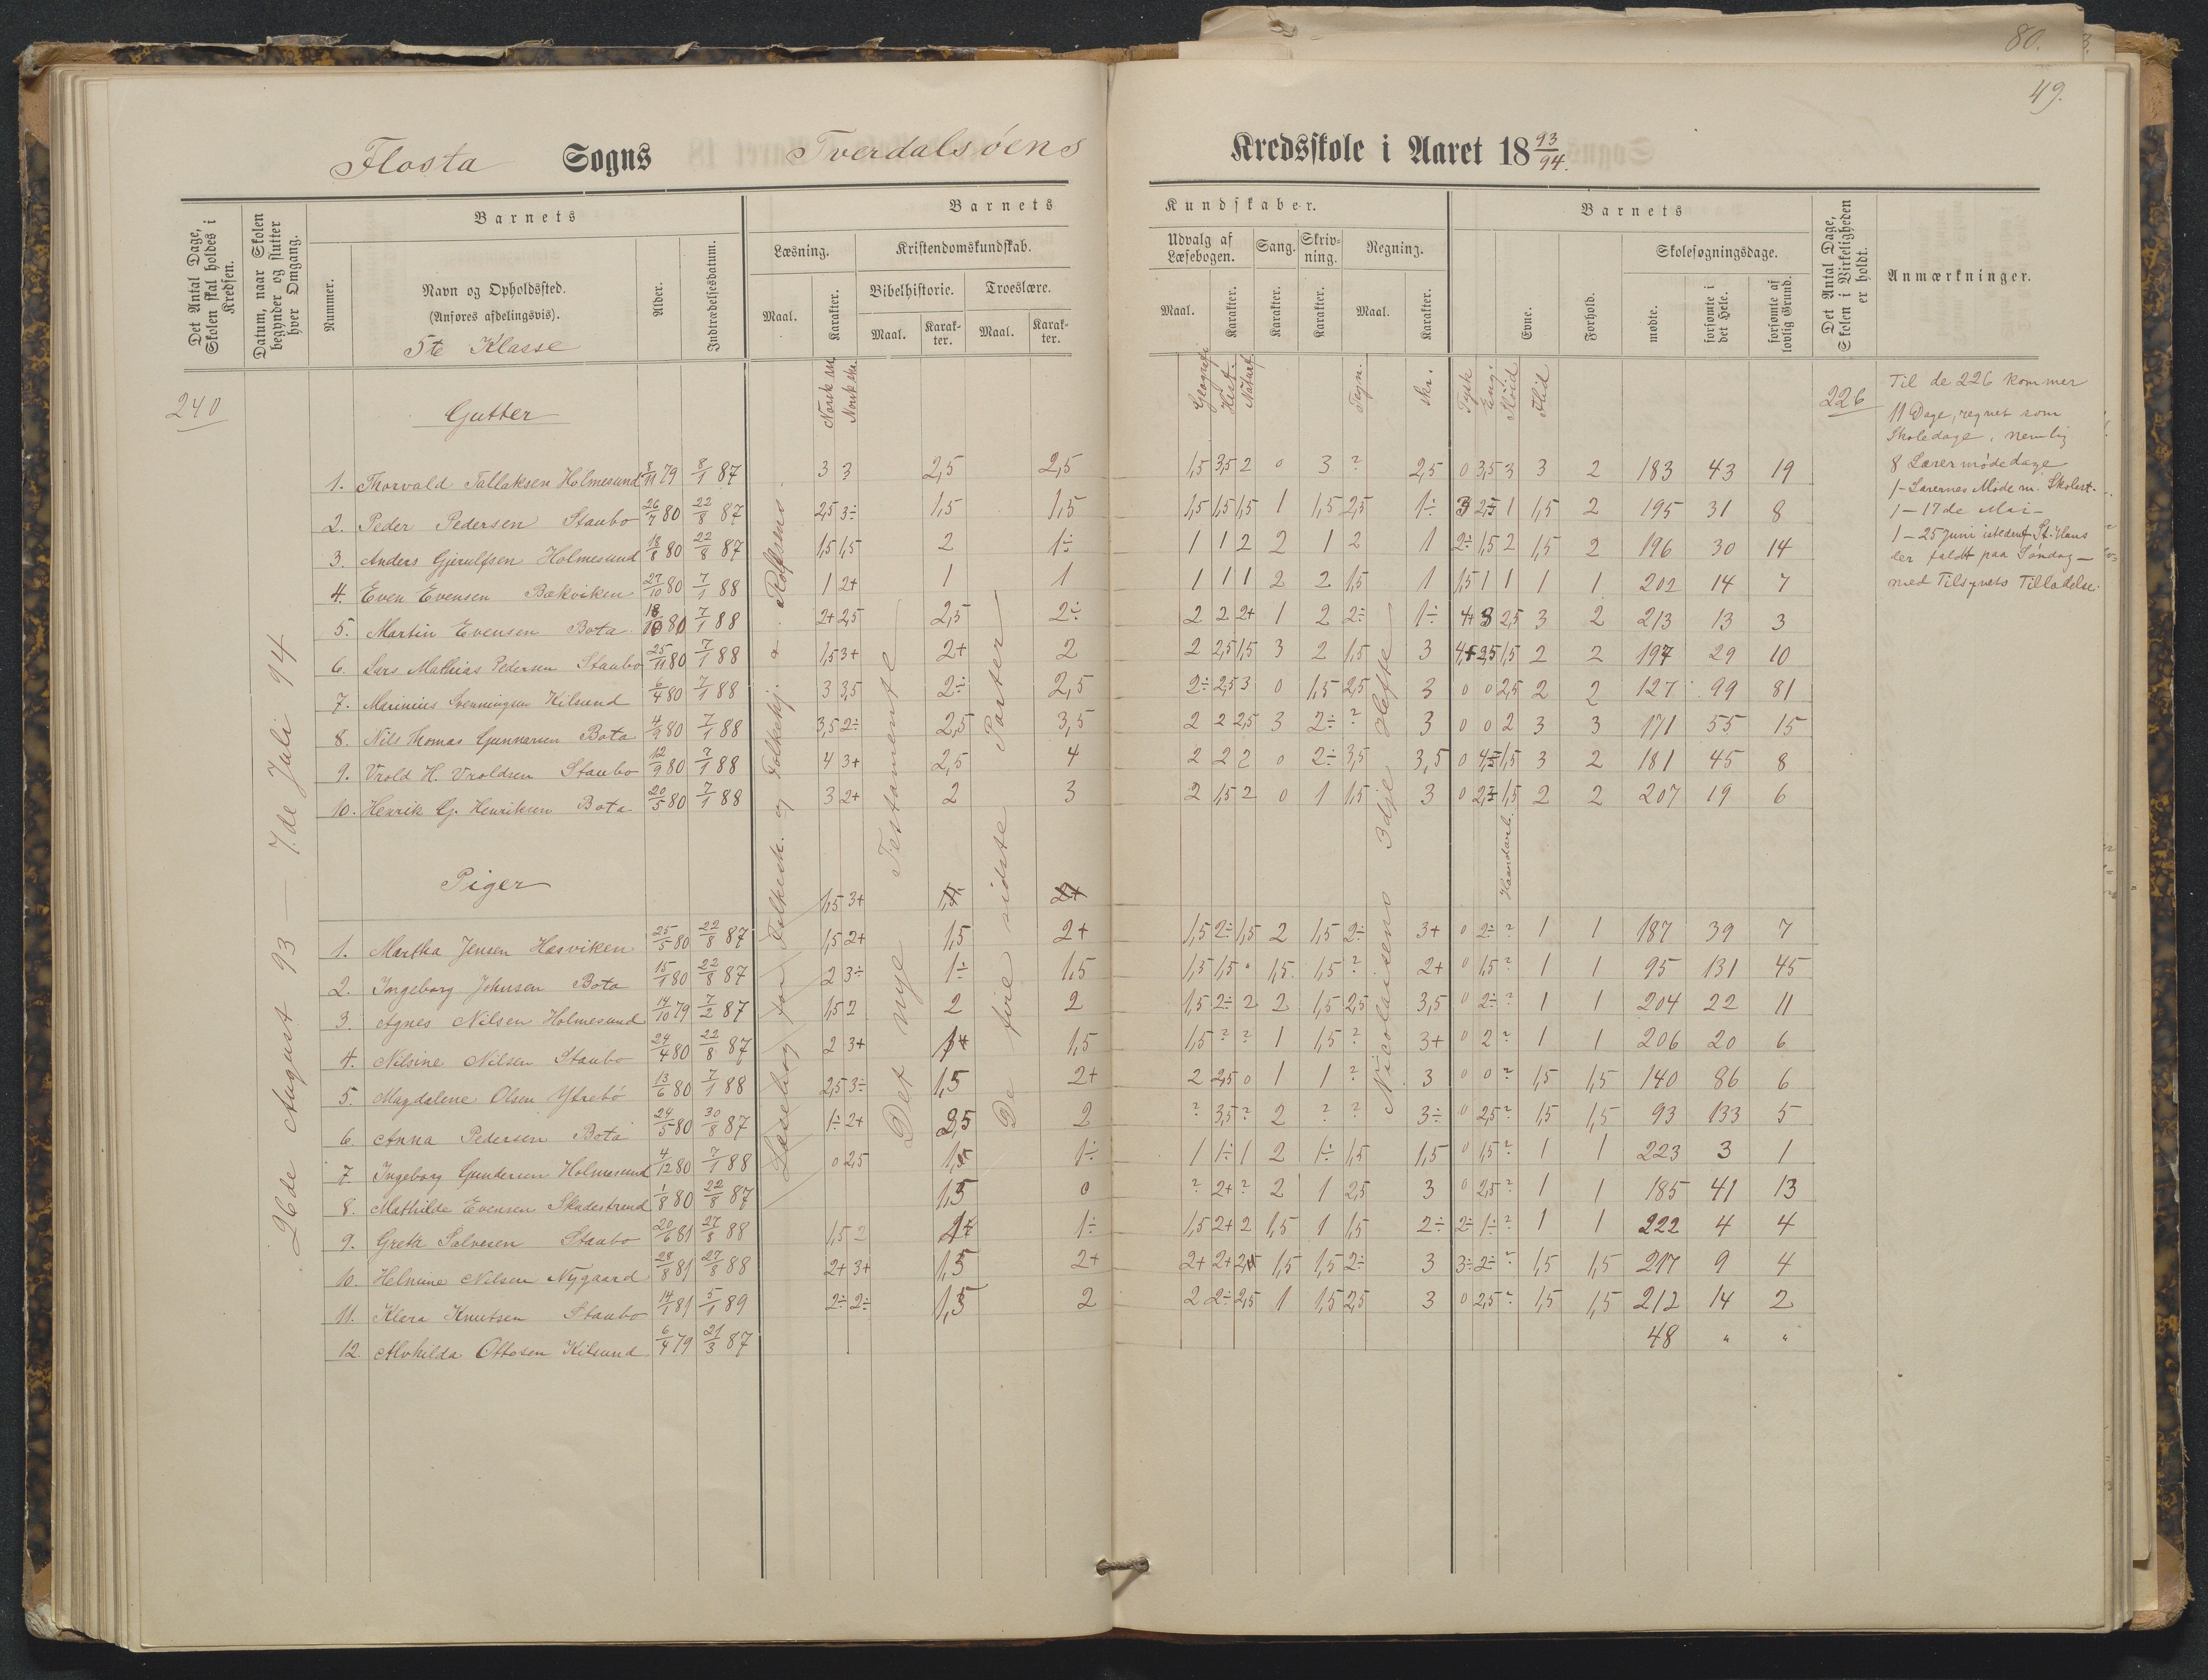 80.
49.
Flosta Sogns Tverdalsöens Kredsskole i Aaret 1893/94.
Det Antal Dage, Skolen skal holdes i Kredsen.
Datum, naar Skolen begynder og slutter hver Omgang.
Barnets
Nummer.
Navn og Opholdssted.
(Anføres afdelingsvis).
5te Klasse
Alder.
Indtrædelsesdatum.
Barnets Kundskaber.
Læsning.
Maal. Karakter.
Kristendomskundskab.
Bibelhistorie. Troeslære.
Maal. Karakter. Maal. Karakter.
Udvalg af Læsebogen.
Maal. Karakter.
Sang.
Karakter.
Skrivning.
Karakter.
Regning.
Maal. Karakter.
Barnets
Evne.
Forhold.
Skolesøgningsdage.
mødte.
forsømte i det Hele.
forsømte af lovlig Grund.
Det Antal Dage, Skolen i Virkeligheden er holdt.
Anmærkninger.
Norsk skr. Geografi Hist. Naturf. Regn. skr. Tysk Eng. Sløid Flid
240
26de August 93 — 7de Juli 94
Gutter
1. Thorvald Tallaksen Holmesund 8/11 79 8/1 87 3 3 2,5 2,5 1,5 3,5 2 0 3 ? 2,5 0 3,5 3 3 2 183 43 19
2. Peder Pedersen Staubo 26/7 80 22/8 87 2,5 3÷ 1,5 1,5 1,5 1,5 1,5 1 1,5 2,5 1÷ 3 2,5 1 1,5 2 195 31 8
3. Anders Gjerulfsen Holmesund 18/8 80 22/8 87 1,5 1,5 2 1÷ 1 1 2 2 1 2 1 2÷ 1,5 2 1,5 2 196 30 14
4. Even Evensen Bakviken 27/10 80 7/1 88 1 2+ 1 1 1 1 1 2 2 1,5 1 1,5 1 1 1 1 202 14 7
5. Martin Evensen Bota 18/10 80 7/1 88 2+ 2,5 2,5 2÷ 2 2 2+ 1 2 2÷ 1÷ 4+ 3 2,5 3 2 213 13 3
6. Lars Mathias Pedersen Staubo 25/11 80 7/1 88 1,5 3+ 2+ 2 2 2,5 1,5 3 2 1,5 3 4,5 3,5 1,5 2 2 197 29 10
7. Marinius Svenningsen Kilsund 6/4 80 7/1 88 3 3,5 2÷ 2,5 2÷ 2,5 3 0 1,5 2,5 3 0 0 2,5 2 2 127 99 81
8. Nils Thomas Gunnarsen Bota 4/9 80 7/1 88 3,5 2÷ 2,5 3,5 2 2 2,5 3 2÷ ? 3 0 0 2 3 3 171 55 15
9. Vrold H. Vroldsen Staubo 12/9 80 7/1 88 4 3+ 2,5 4 2 2 2 0 2÷ 3,5 3,5 0 4,5 1,5 3 2 181 45 8
10. Henrik G. Henriksen Bota 20/5 80 7/1 88 3 2+ 2 3 2 1,5 2 0 1 1,5 3 0 2,5 1,5 2 2 207 19 6
Læsebog for Folkesk. og Folkehj. Rolfsens
Det nye Testamente
De fire sidste Parter
Nicolaisens 3dje Hefte
Haandarb.
Piger
1,5 3+
1. Martha Jensen Hasviken 25/5 80 22/8 87 1,5 2+ 1,5 2+ 1,5 2÷ 1,5 2 1,5 2÷ 3+ 0 2÷ ? 1 1 187 39 7
2. Ingeborg Johnsen Bota 15/1 80 22/8 87 2 3÷ 1÷ 1,5 1,5 1,5 " 1,5 1,5 ? 2+ 0 1,5 ? 1 1 95 131 45
3. Agnes Nilsen Holmesund 14/10 79 7/2 87 1,5 2 2 2 1,5 2÷ 2 2 1,5 2,5 3,5 0 2÷ ? 1 1 204 22 11
4. Nilsine Nilsen Staubo 24/4 80 22/8 87 2 3+ 1+ 1,5 1,5 ? ? 1 1,5 ? 3+ 0 2 ? 1 1 206 20 6
5. Magdalene Olsen Ytrebö 13/6 80 7/1 88 2,5 3÷ 1,5 2+ 2 2,5 0 1 1 ? 3 0 0 ? 1,5 1,5 140 86 6
6. Anna Pedersen Bota 24/5 80 30/8 87 1÷ 2+ 2,5 2 ? 3,5 ? 2 ? ? 3÷ 0 2,5 ? 1,5 1,5 93 133 5
7. Ingeborg Gundersen Holmesund 4/12 80 7/1 88 0 2,5 1,5 1÷ 1 1÷ 1 2 1÷ 1,5 1,5 0 1,5 ? 1 1 223 3 1
8. Mathilde Evensen Skadestrend 1/8 80 22/8 87 1,5 0 ? 2+ ? 2 1 2,5 3 0 2,5 ? 1 1 185 41 13
9. Grete Salvesen Staubo 20/6 81 27/8 88 1,5 2 1+ 1÷ 1,5 2+ 2 1,5 1 1,5 2÷ 2÷ 1÷ ? 1 1 222 4 4
10. Helmine Nilsen Nygaard 28/8 81 27/8 88 2+ 3+ 1,5 2+ 2+ 2+ 2,5 1,5 1,5 2÷ 3 3÷ 2÷ ? 1,5 1,5 217 9 4
11. Klara Knutsen Staubo 14/1 81 5/1 89 2÷ 2÷ 1,5 2 2 2÷ 2,5 1 1,5 2,5 3 0 2,5 ? 1,5 1,5 212 14 2
12. Alvhilda Ottosen Kilsund 6/4 79 21/3 87 48 " "
226
Til de 226 kommer
11 Dage, regnet som
Skoledage, nemlig
8 Lærermødedage
1 – Lærernes Møde m. Skolest.
1 – 17de Mai –
1 – 25 Juni istedenf. St. Hans
der faldt paa Søndag –
med Tilsynets Tilladelse.